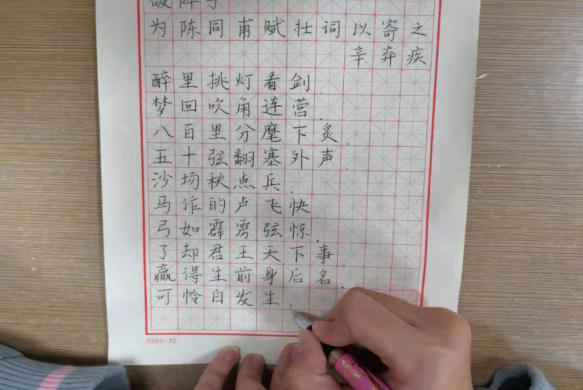 破阵子
为陈同甫赋壮词以寄之
辛弃疾
醉里挑灯看剑.
梦回吹角连营.
八百里分麾下炙.
五十弦翻塞外声.
沙场秋点兵.
马作的卢飞快
弓如霹雳弦惊.
了却君王天下事
赢得生前身后名.
可怜白发生.